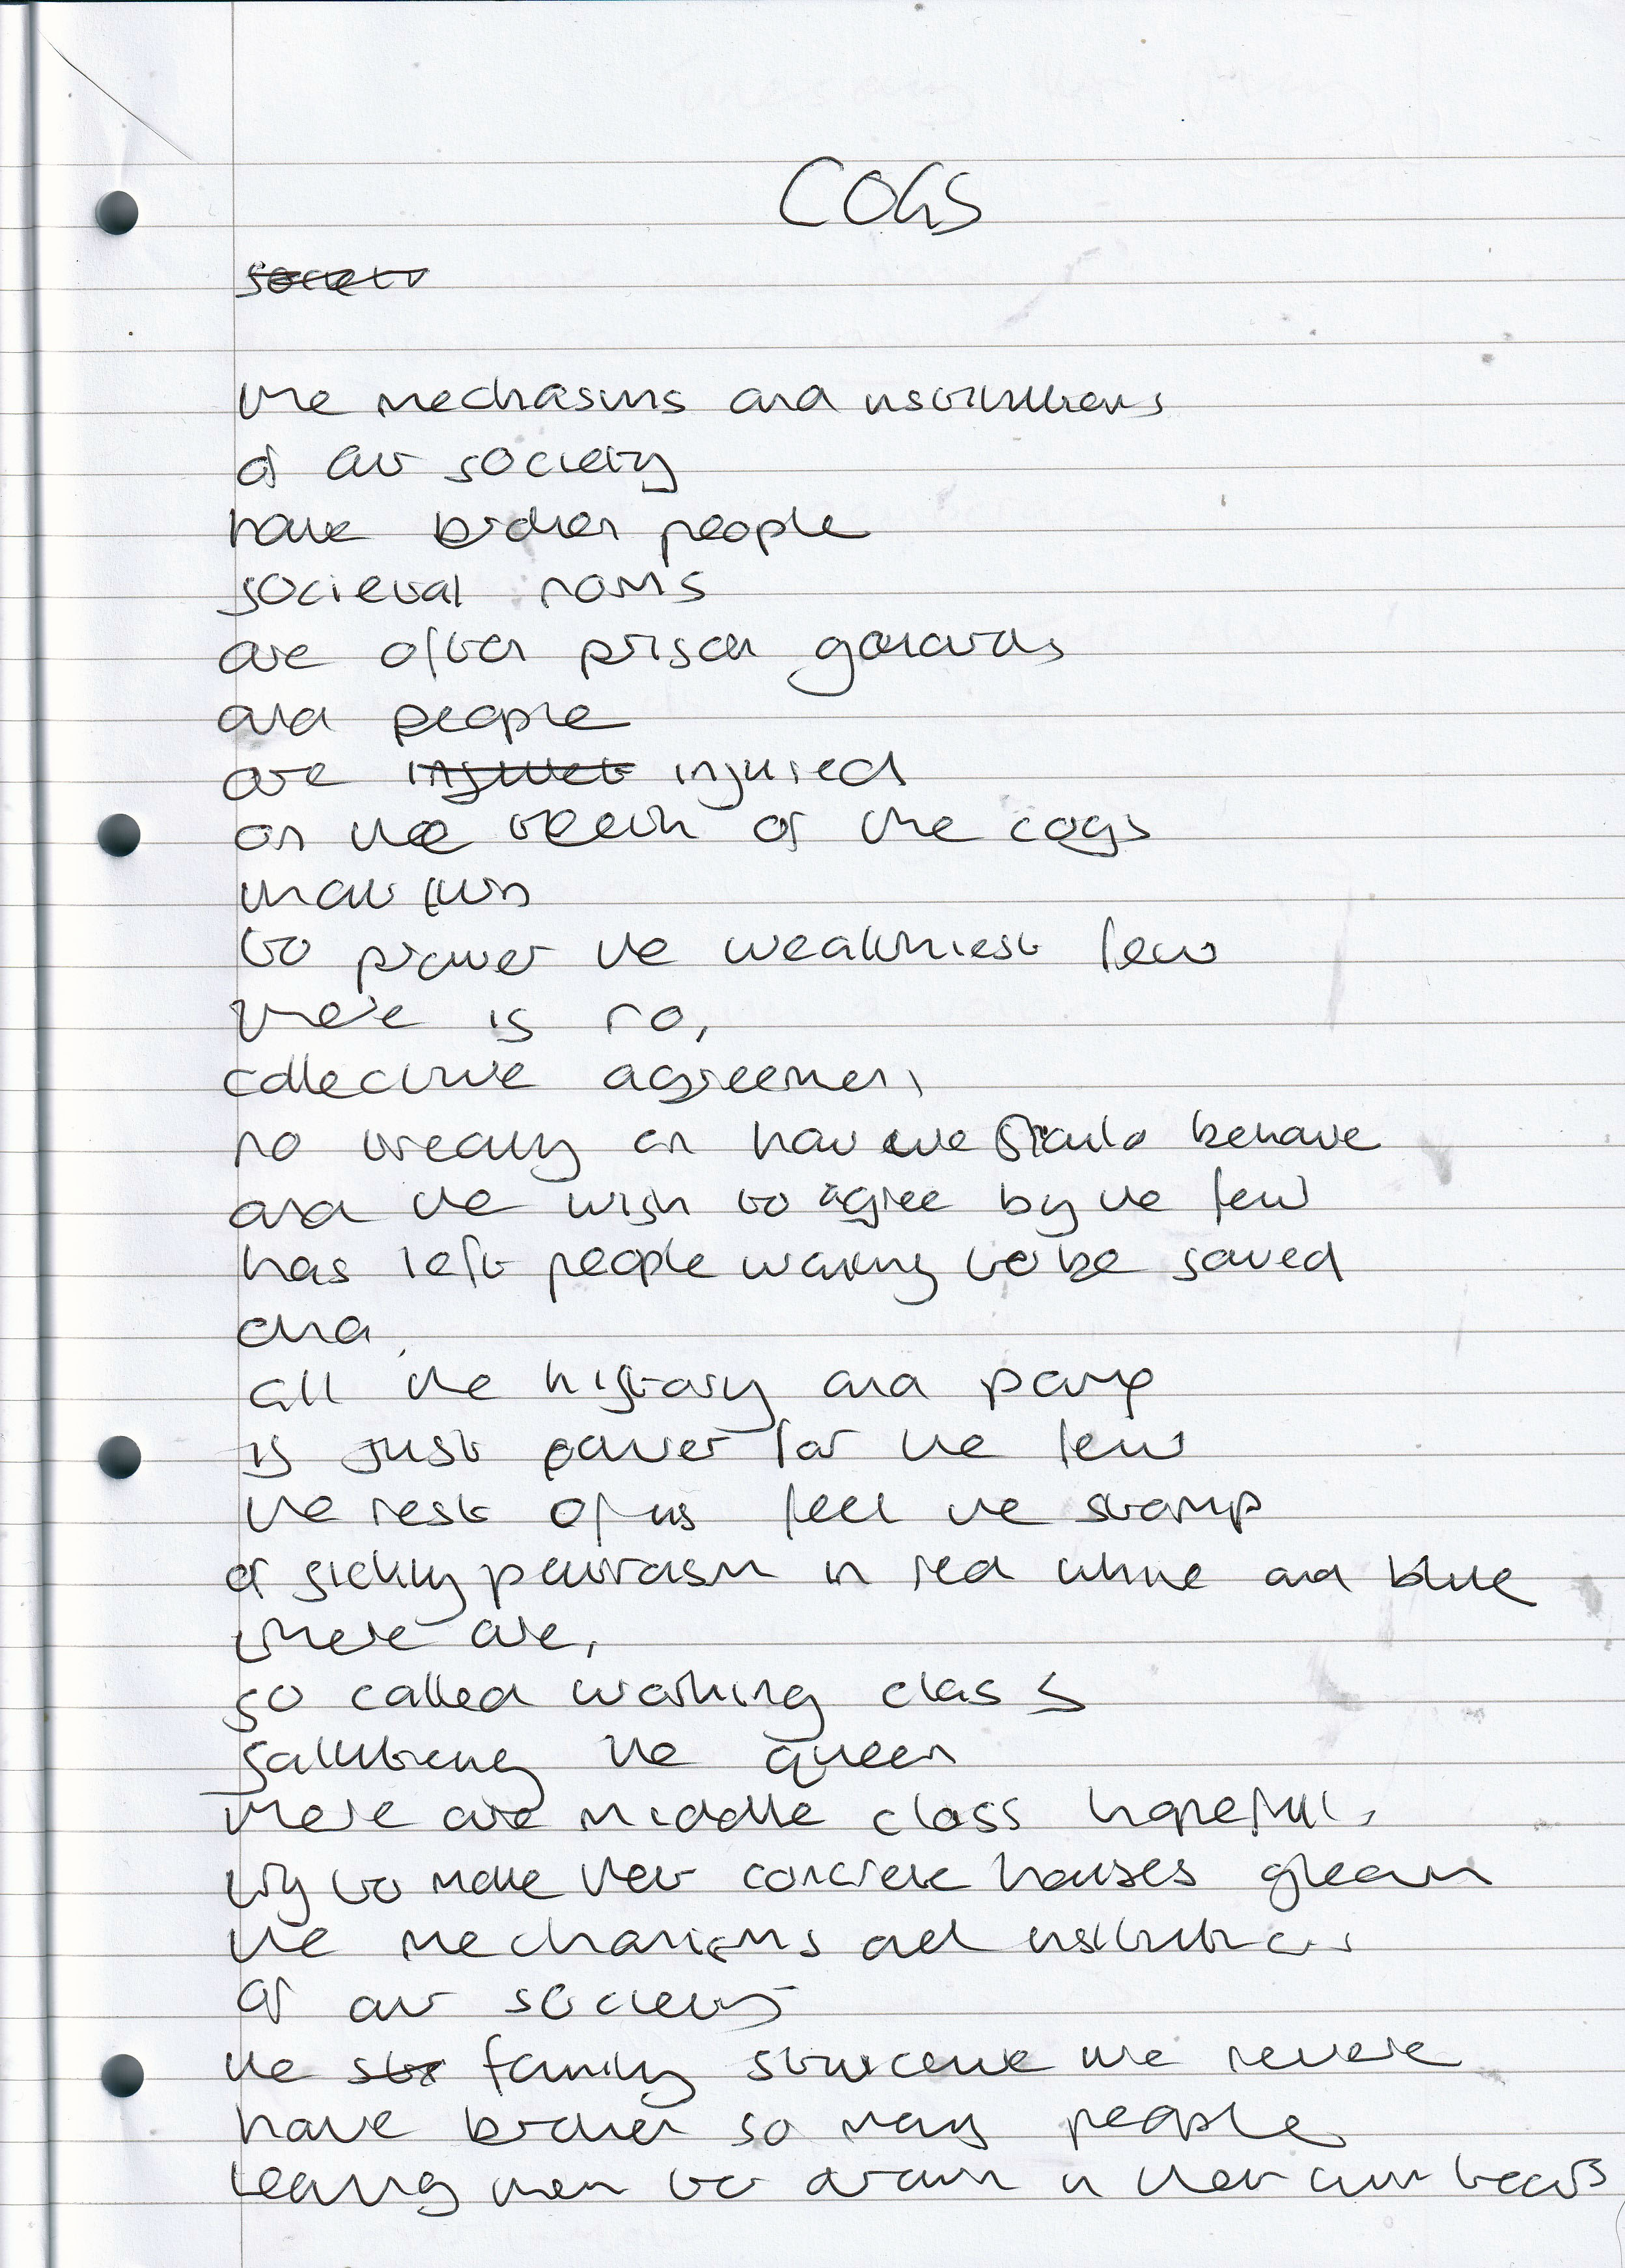 COGS
societ
the mechasims and institutions
of our society
have broken people
societal norms
are often prison guards
and people
are injured
on the teeth of the cogs
that turn
to power the wealthiest few
there is no,
collective agreement
no treaty on how we should behave
and the wish to agree by the few
has left people waiting to be saved
and
all the history and pomp
is just power for the few
the rest of us feel the stomp
of sickly patriotism in red white and blue
there are,
so called working class
saluting the queen
there are middle class hopefuls
try to make their concrete houses gleam
the mechanisms and institutions
of our society
the family structure we revere
have broken so many people
leaving them to drown in their own tears